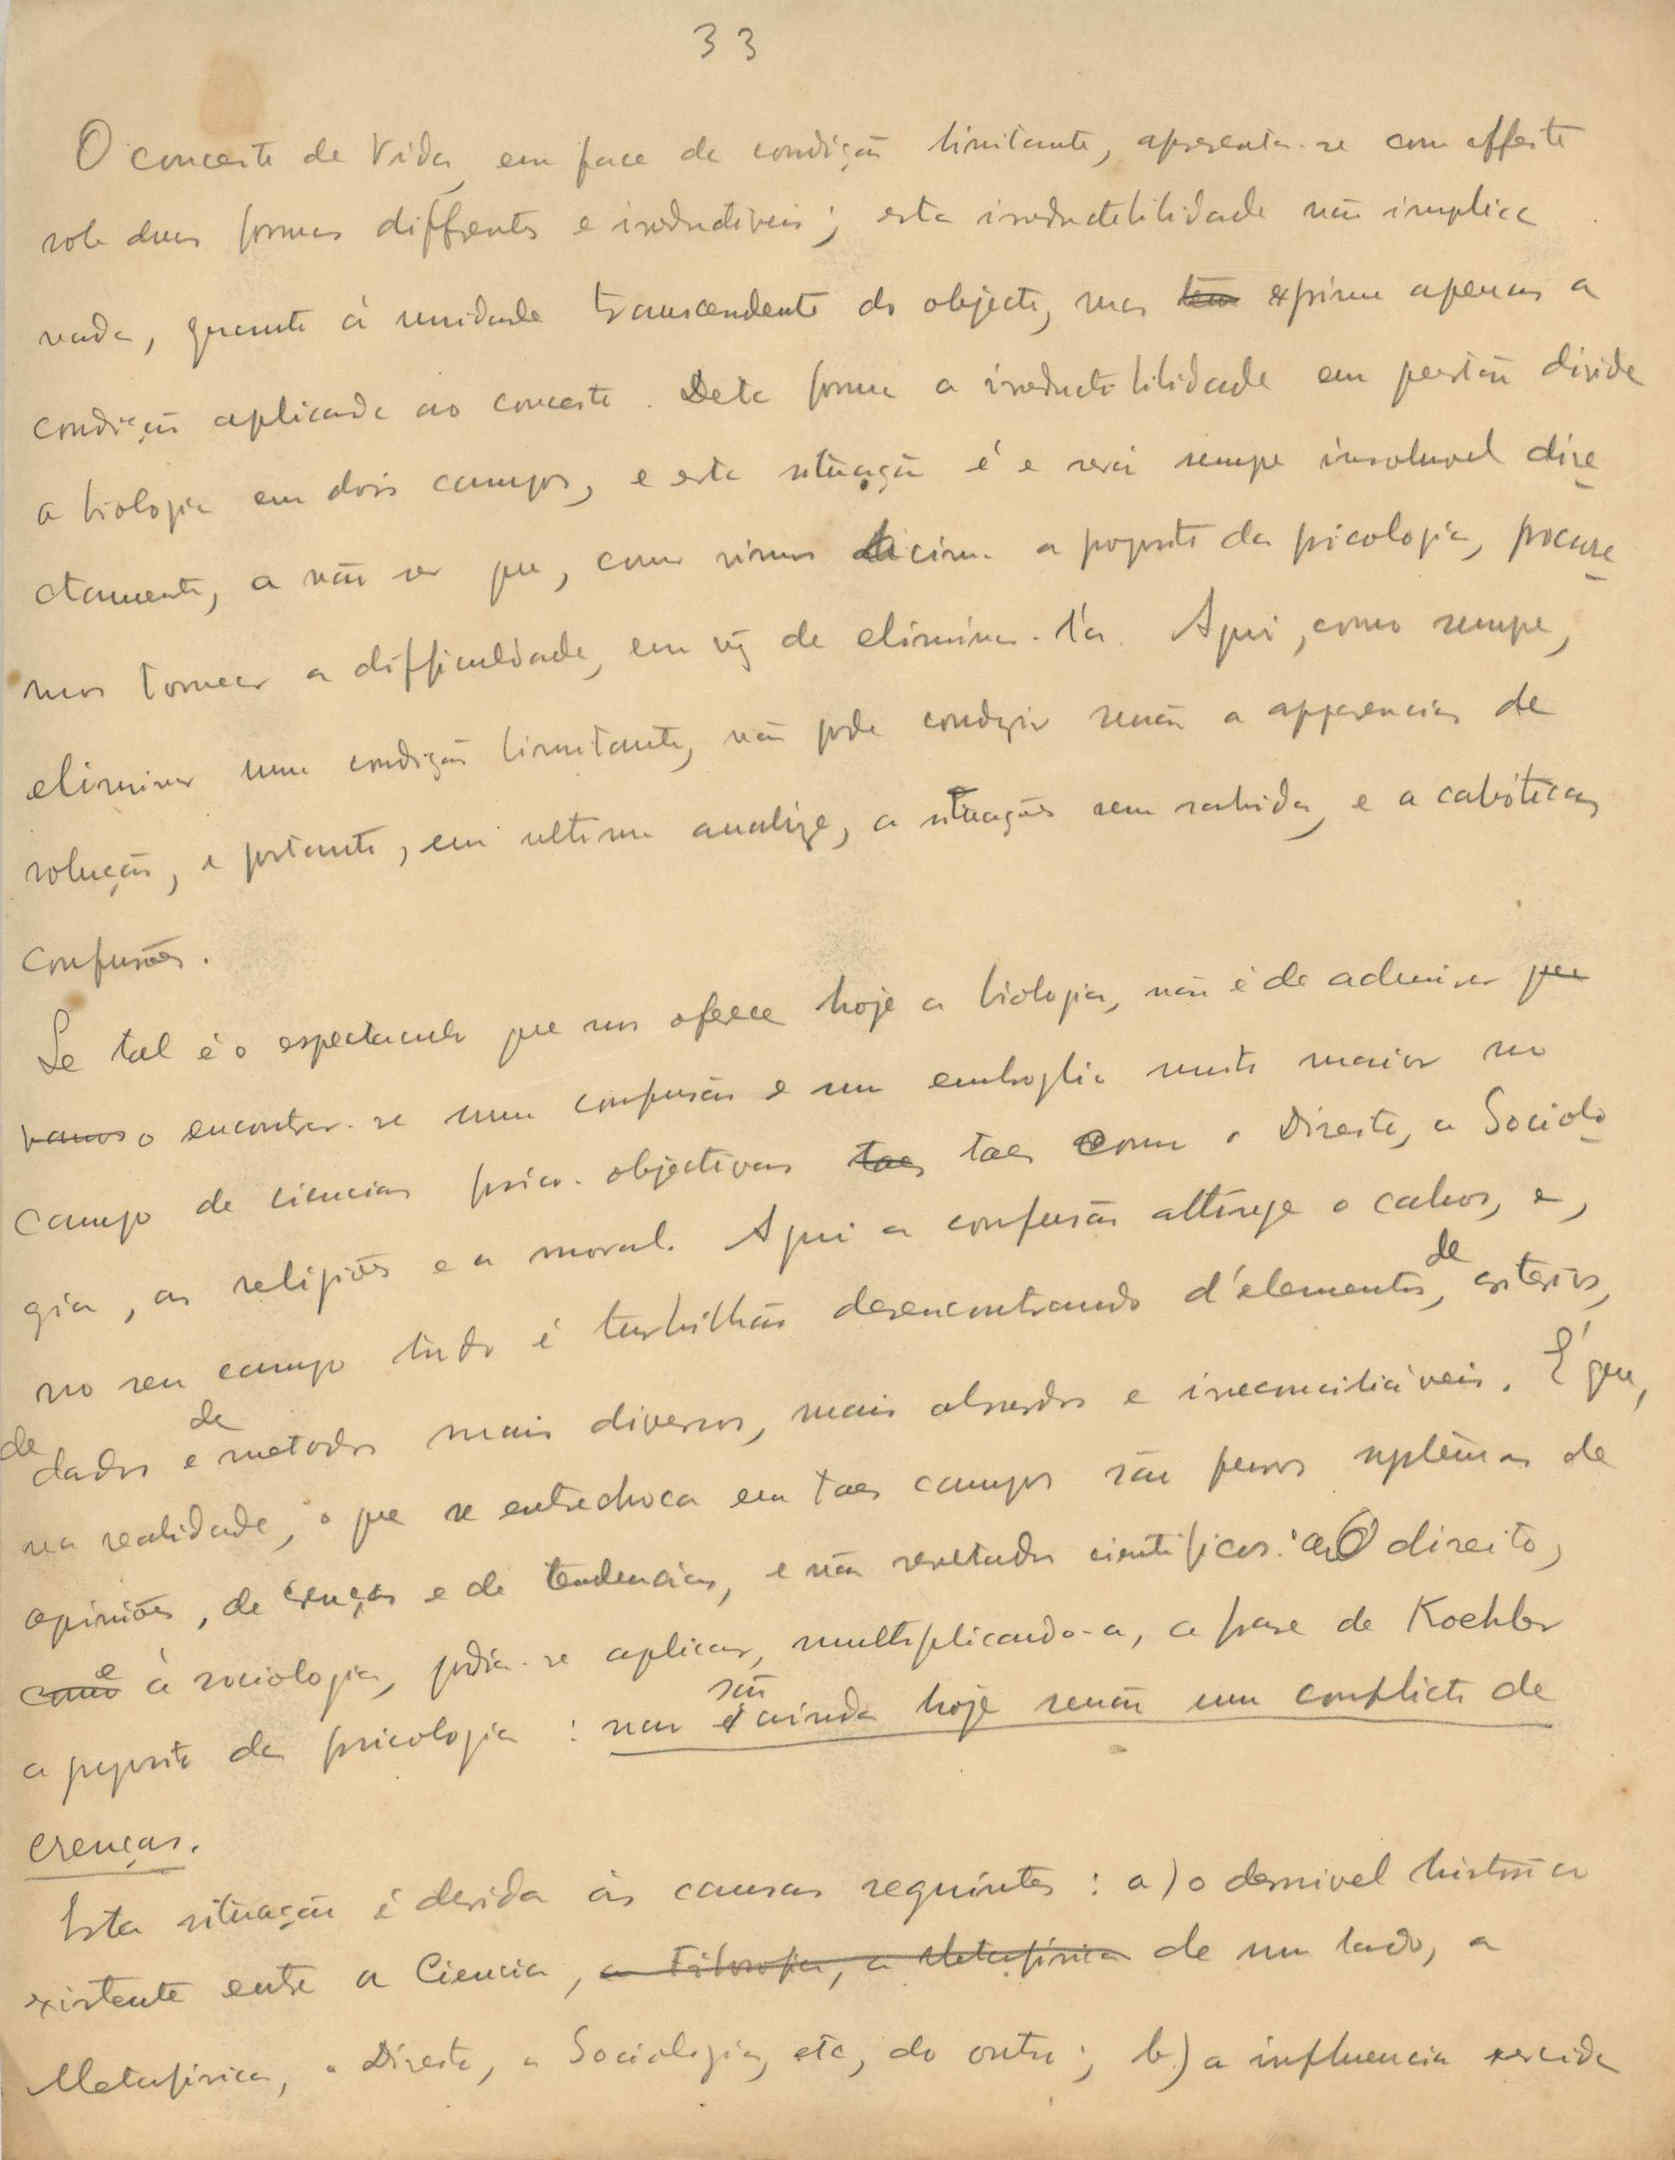 33
O conceito de Vida, em face da condição limitante, apresenta-se com effeito
sob duas formas differentes e irreductiveis; esta irreductibilidade não implica
nada, quanto á unidade transcendente do objecto, mas tem exprime apenas a
condição aplicada ao conceito. Desta forma a irreductibilidade em questão divide
a biologia em dois campos, e esta situação é e será sempre insoluvel dire
ctamente, a não ser que, como vimos acima a proposito da psicologia, procure
mos tornear a difficuldade, em vez de eliminar-l'a. Aqui, como sempre,
eliminar uma condição limitante, não pode conduzir senão a apparencias de
solução, e portanto, em ultima analize, a situações sem sahida, e a cahóticas
confusões.
Se tal é o espectaculo que nos oferece hoje a biologia, não é de admirar que
vamos o encontrar-se uma confusão e um embroglio muito maior no
campo de ciencias psico-objectivas taes taes como o Direito, a Sociolo
gia, as religiões e a moral. Aqui a confusão attinge o cahos, e,
no seu campo tudo é turbilhão desencontrando d'elementos, de criterios,
de dados e de metodos mais diversos, mais absurdos e irreconciliáveis. É que,
na realidade, o que se entrechoca em taes campos são puros systemas de
opiniões, de crenças e de tendencias, e não resultados cientificos: ao direito,
como e à sociologia, podia-se aplicar, multiplicando-a, a frase de Koehler
a proposito da psicologia: nao são é ainda hoje senão um conflicto de
crenças.
Esta situação é devida ás causas seguintes: a) o desnivel histórico
existente entre a Ciencia, a Filosofia, a Metafisica de um lado, a
Metafisica, o Direito, a Sociologia, etc, do outro; b) a influencia exercida